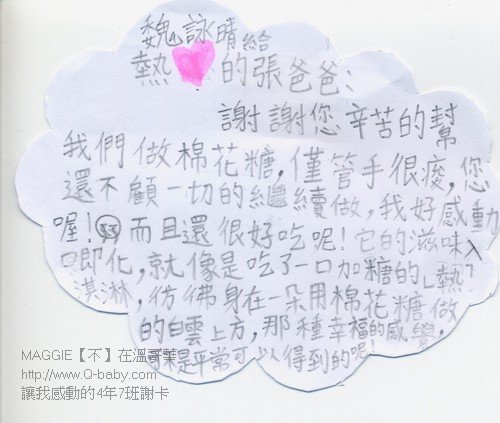 魏詠晴給
熱的張爸爸：
謝謝您辛苦的幫
我們做棉花糖，僅管手很痠，您
還不顧一切的繼續做，我好感動
喔！而且還很好吃呢！它的滋味入
口即化，就像是吃了一口加糖的「熱」
淇淋，仿彿身在一朵用棉花糖做
的白雲上方，那種幸福的感覺，
不是平常可以得到的呢！
MAGGIE【不】在溫哥華
http://www.Q-baby.com
讓我感動的4年7班謝卡